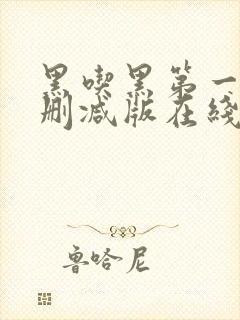 黑喫黑第一
删减版在綫
鲁哈尼